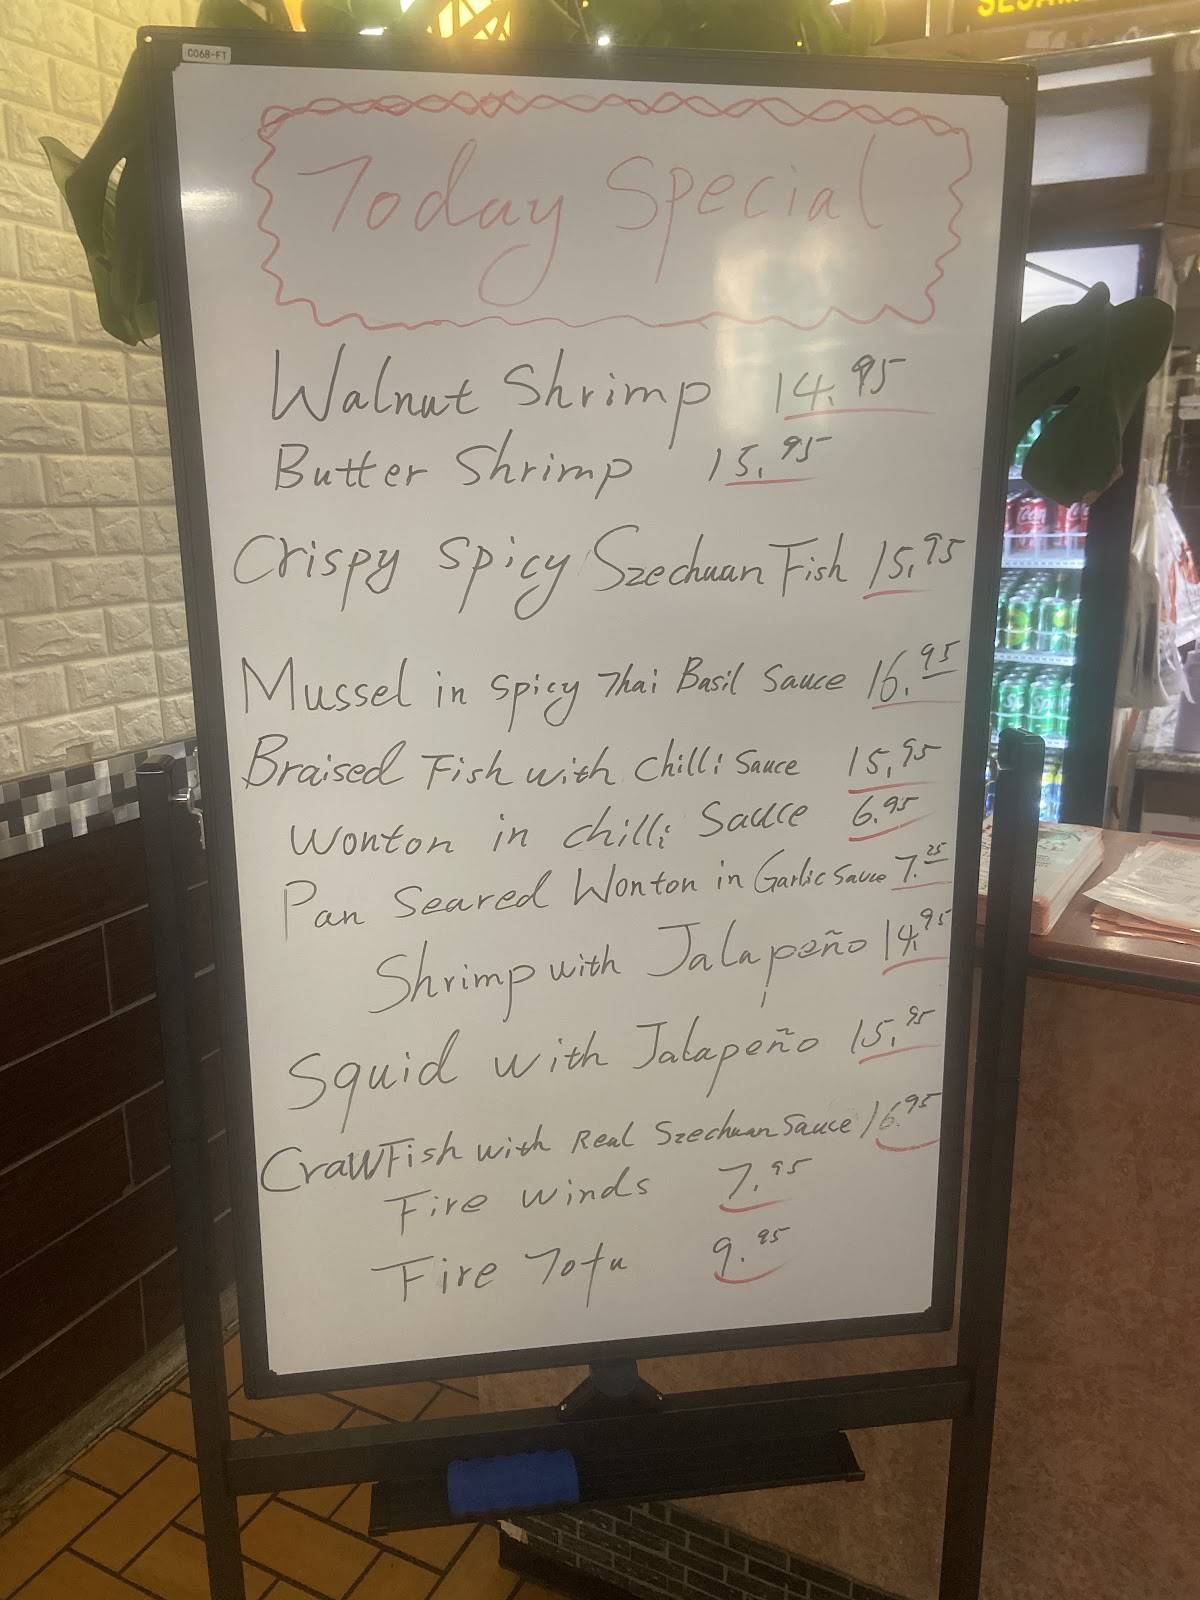 C068-FT
SESAM
Today Special
Walnut Shrimp 14.95
Butter Shrimp 15.95
Crispy Spicy Szechuan Fish 15.95
Mussel in Spicy Thai Basil Sauce 16.95
Braised Fish with Chilli Sauce 15.95
Wonton in Chilli Sauce 6.95
Pan Seared Wonton in Garlic Sauce 7.25
Shrimp with Jalapeño 14.95
Squid with Jalapeño 15.95
CrawFish with Real Szechuan Sauce 16.95
Fire Winds 7.95
Fire Tofu 9.95